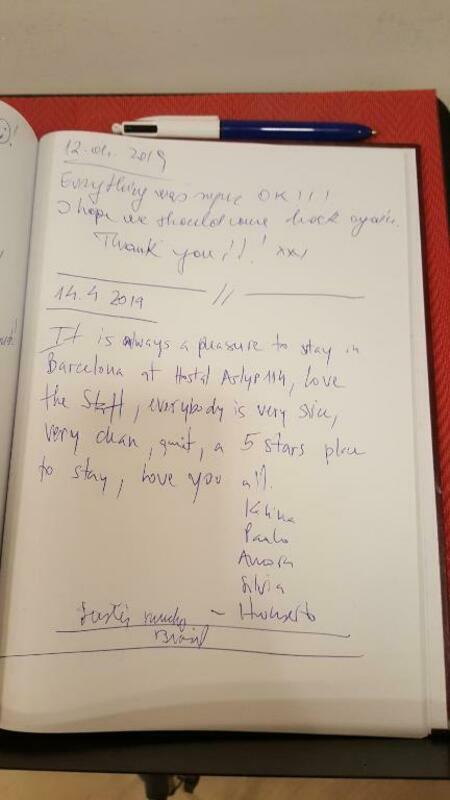 12.04. 2019
Everything was super OK!!!
I hope we should come back again.
Thank you!!! xxx
14.4 2019
It is always a pleasure to stay in
Barcelona at Hostal Aslyp 114, love
the Staff, everybody is very nice,
very clean, quiet, a 5 stars place
to stay, love you all.
Paulo
Silvia
Brasil